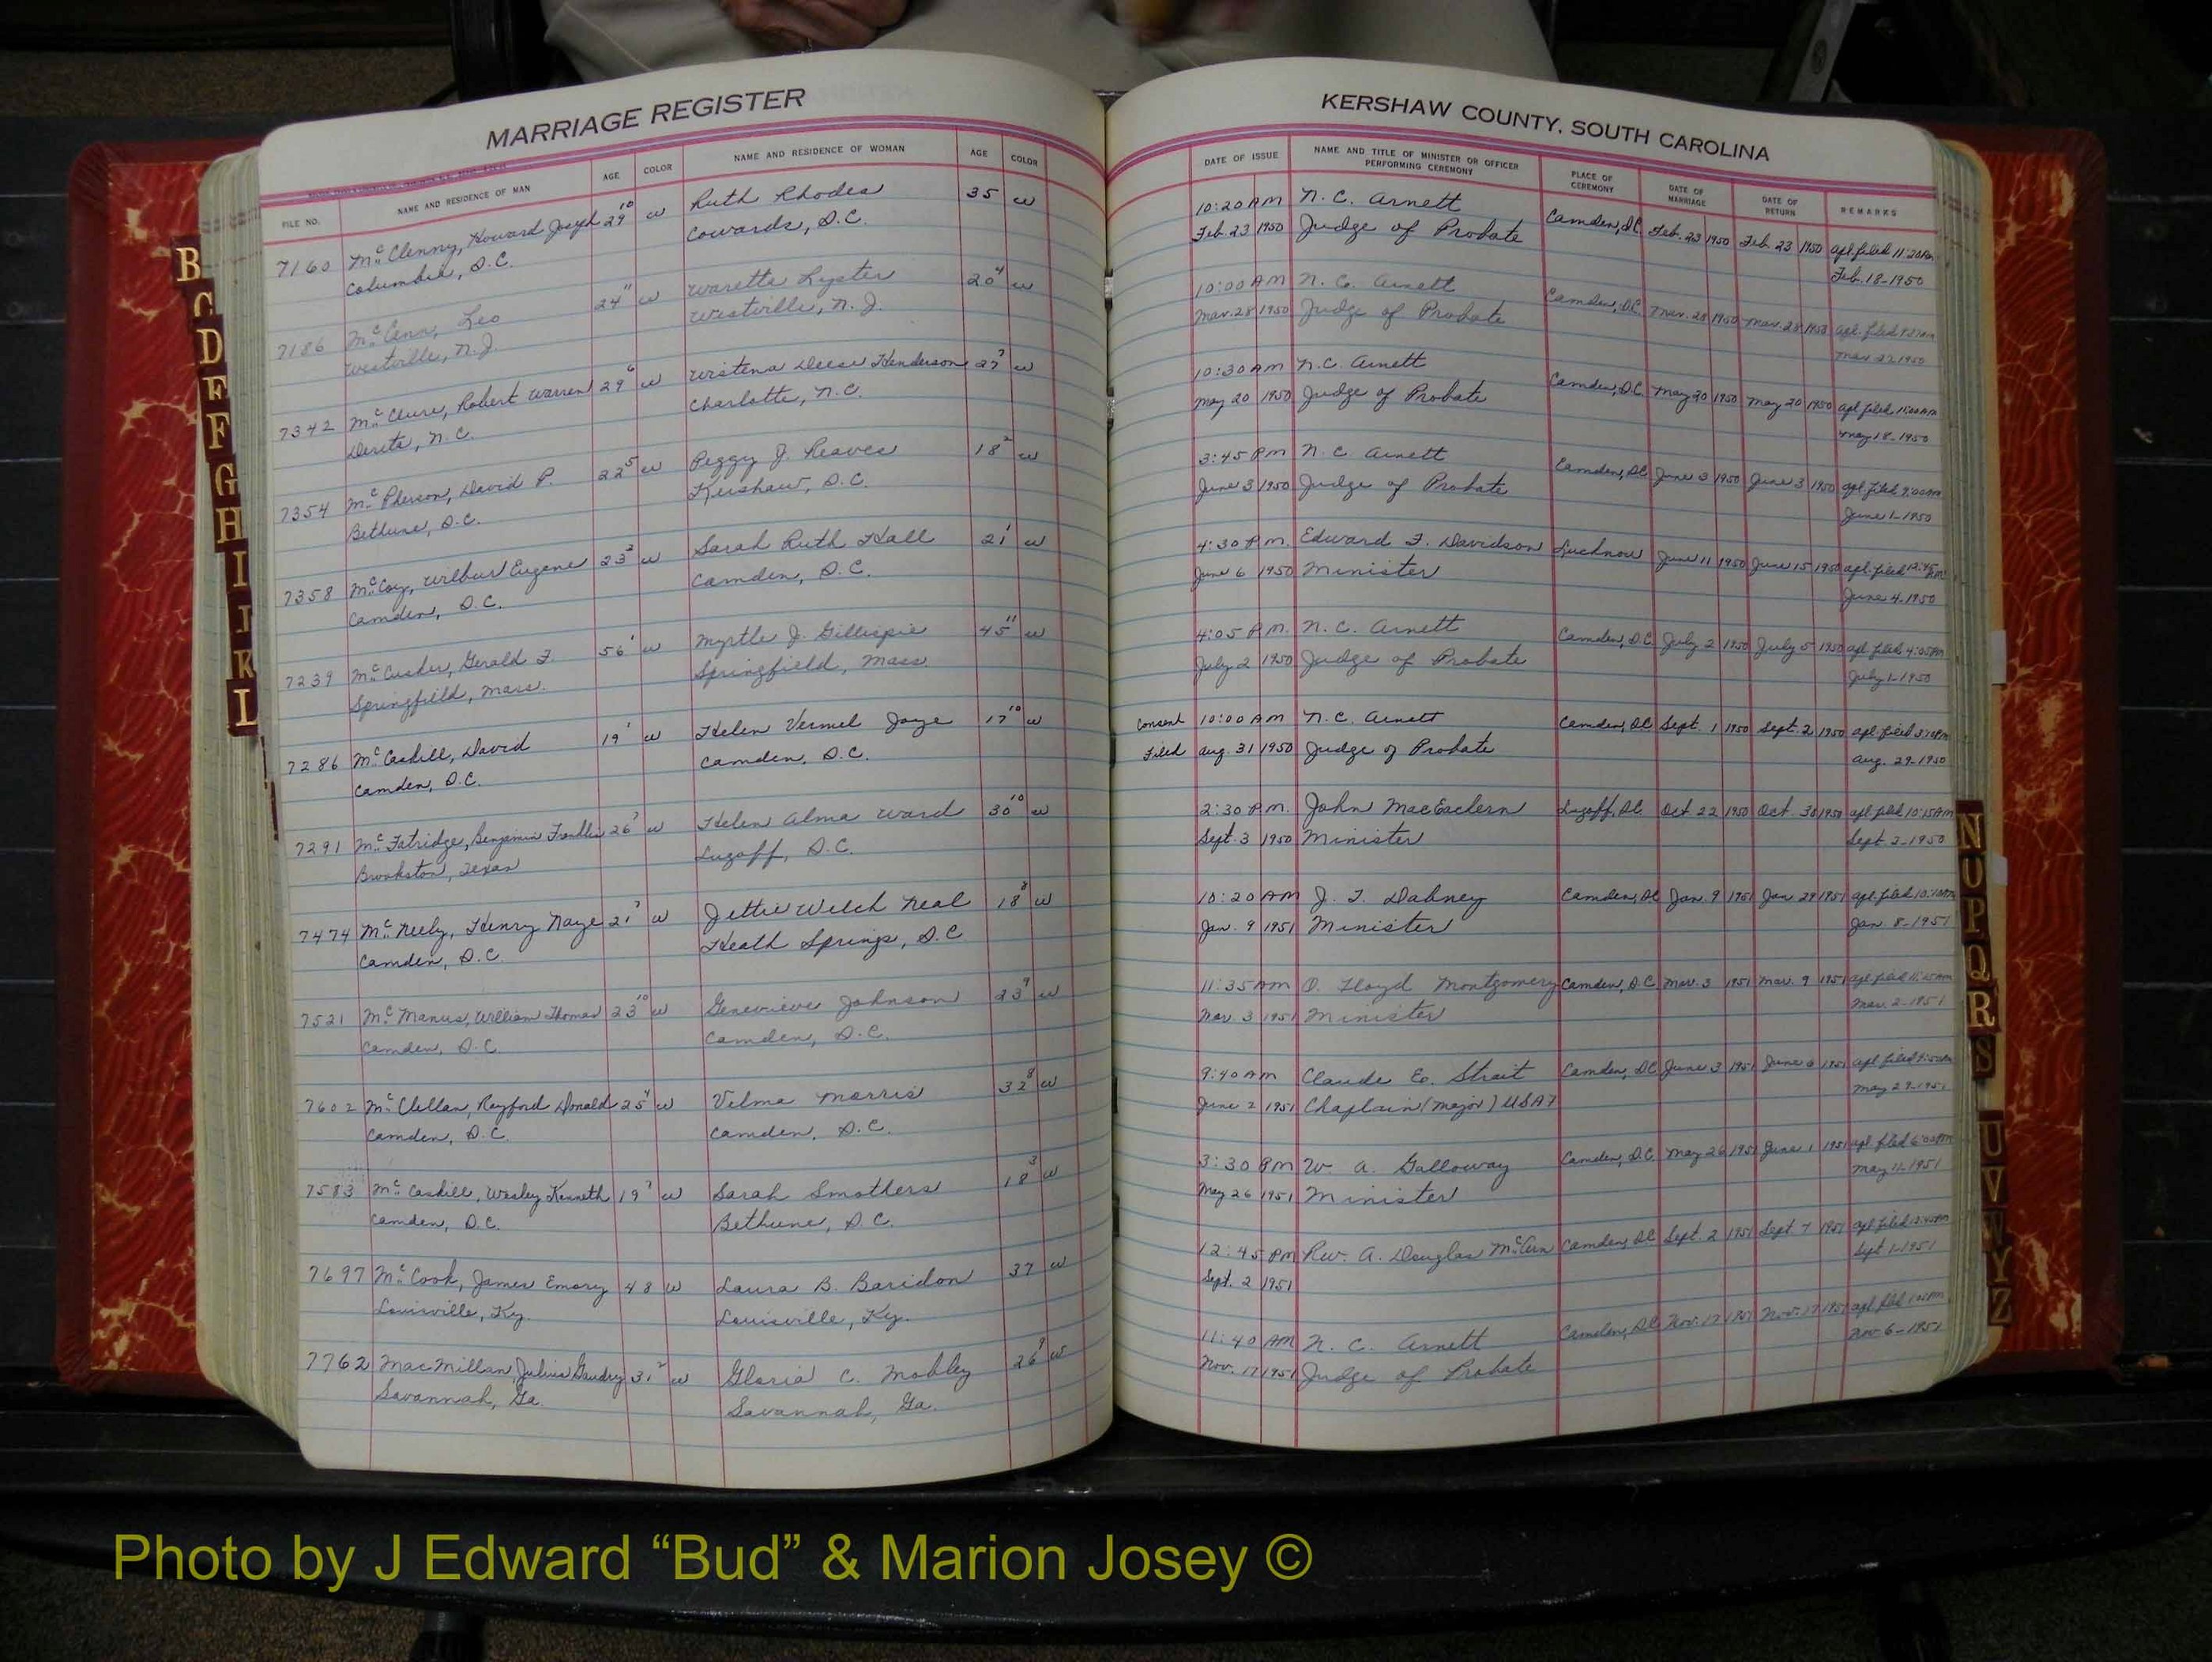 MARRIAGE REGISTER
FILE NO. NAME AND RESIDENCE OF MAN AGE COLOR NAME AND RESIDENCE OF WOMAN AGE COLOR
7160 McClenny, Howard Joseph 29 10 w Ruth Rhodes 35 w
Columbia, S.C. Cowards, S.C.
7186 Leo 24 11 w Lyster 20 4 w
Westville, N.J. Westville, N.J.
7342 McClure, Robert Warren 29 6 w Wistena Deese Henderson 27 7 w
Derita, N.C. Charlotte, N.C.
7354 McPherson, David P. 22 5 w Peggy J. Reaves 18 2 w
Bethune, S.C. Kershaw, S.C.
7358 McCoy, Wilbur Eugene 23 2 w Sarah Ruth Hall 21 1 w
Camden, S.C. Camden, S.C.
7239 McCusker, Gerald F. 56 1 w Myrtle J. Gillispie 45 11 w
Springfield, Mass. Springfield, Mass.
7286 McCaskill, David 19 1 w Helen Vermel Joye 17 10 w
Camden, S.C. Camden, S.C.
7291 McFatridge, Benjamin Franklin 26 7 w Helen Alma Ward 30 10 w
Brookston, Texas Lugoff, S.C.
7474 McNeely, Henry Naye 21 7 w Jettie Welch Neal 18 8 w
Camden, S.C. Heath Springs, S.C.
7521 McManus, William Thomas 23 10 w Genevieve Johnson 23 9 w
Camden, S.C. Camden, S.C.
7602 McClellan, Rayford Donald 25 4 w Velma Morris 32 8 w
Camden, S.C. Camden, S.C.
7583 McCaskill, Wesley Kenneth 19 7 w Sarah Smothers 18 3 w
Camden, S.C. Bethune, S.C.
7697 McCook, James Emory 48 w Laura B. Baridon 37 w
Louisville, Ky. Louisville, Ky.
7762 MacMillan, Julius Gaudry 31 2 w Gloria C. Mobley 26 9 w
Savannah, Ga. Savannah, Ga.
KERSHAW COUNTY, SOUTH CAROLINA
DATE OF ISSUE NAME AND TITLE OF MINISTER OR OFFICER PERFORMING CEREMONY PLACE OF CEREMONY DATE OF MARRIAGE DATE OF RETURN REMARKS
10:20 AM N. C. Arnett Camden, S.C. Feb. 23 1950 Feb. 23 1950 apl. filed 11:20 AM
Feb. 23 1950 Judge of Probate Feb. 18-1950
10:00 AM N. C. Arnett Camden, S.C. Mar. 28 1950 Mar. 28 1950 apl. filed
Mar. 28 1950 Judge of Probate Mar 27 1950
10:30 AM N. C. Arnett Camden, S.C. May 20 1950 May 20 1950 apl. filed 11:00 AM
May 20 1950 Judge of Probate May 18-1950
3:45 PM N. C. Arnett Camden, S.C. June 3 1950 June 3 1950 apl. filed 9:00 AM
June 3 1950 Judge of Probate June 1-1950
4:30 P.M. Edward F. Davidson Lucknow June 11 1950 June 15 1950 apl. filed 12:45
June 6 1950 Minister June 4-1950
4:05 P.M. N. C. Arnett Camden, S.C. July 2 1950 July 5 1950 apl. filed 4:05 PM
July 2 1950 Judge of Probate July 1-1950
Consent 10:00 AM N. C. Arnett Camden, S.C. Sept. 1 1950 Sept. 2 1950 apl. filed
Filed Aug. 31 1950 Judge of Probate Aug. 29-1950
2:30 P.M. John MacEachern Lugoff, S.C. Oct 22 1950 Oct. 30 1950 apl. filed 10:15 AM
Sept. 3 1950 Minister Sept. 2-1950
10:20 AM J. T. Dabney Camden, S.C. Jan. 9 1951 Jan 29 1951 apl. filed 10:10 AM
Jan. 9 1951 Minister Jan. 8-1951
11:35 AM O. Floyd Montgomery Camden, S.C. Mar. 3 1951 Mar. 9 1951 apl. filed
Mar. 3 1951 Minister Mar. 2-1951
9:40 AM Claude E. Strait Camden, S.C. June 3 1951 June 6 1951 apl. filed
June 2 1951 Chaplain (Major) USAF May 29-1951
3:30 PM W. A. Galloway Camden, S.C. May 26 1951 June 1 1951 apl. filed
May 26 1951 Minister May 11-1951
12:45 PM Rev. A. Douglas Camden, S.C. Sept. 2 1951 Sept. 7 1951 apl. filed
Sept. 2 1951 Sept 1-1951
11:40 AM N. C. Arnett Camden, S.C. Nov. 17 1951 Nov. 17 1951 apl. filed
Nov. 17 1951 Judge of Probate Nov 6-1951
B
C
D
E
F
G
H
I
J
K
L
N
O
P
Q
R
S
U
V
W
Y
Z
Photo by J Edward “Bud” & Marion Josey ©